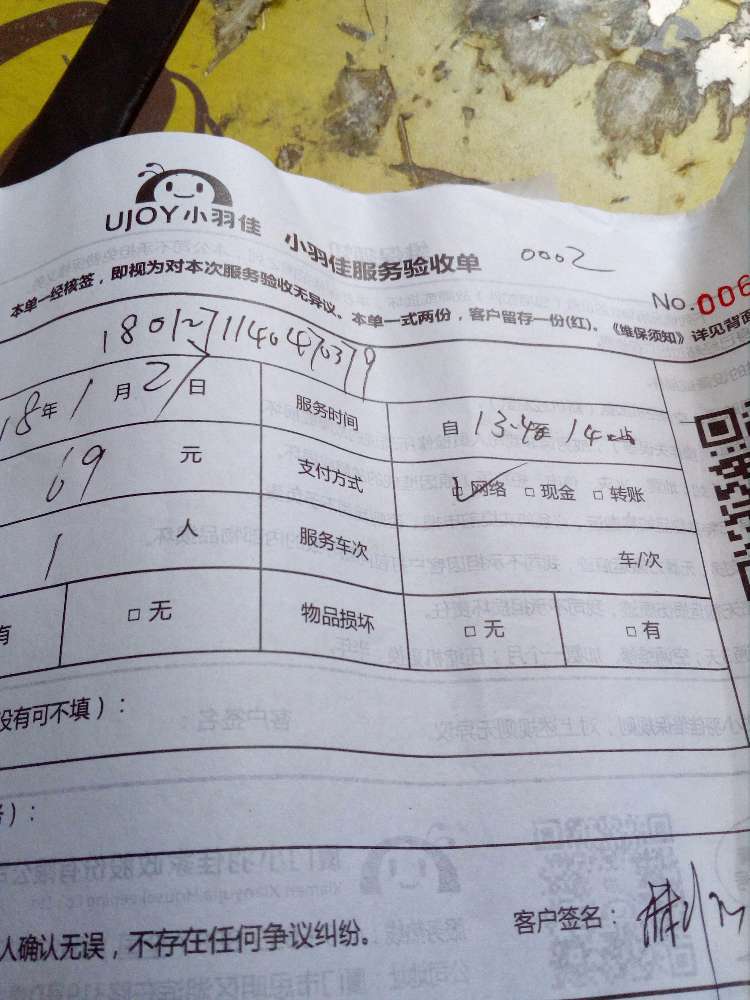 UJOY小羽佳 小羽佳服务验收单 0002
No.006
本单一经核签，即视为对本次服务验收无异议。本单一式两份，客户留存一份(红)。《维保须知》详见背面
18年1月27日 服务时间 自 13.4 至 14
69 元 支付方式 网络 □ 现金 □ 转账
1 人 服务车次 车/次
有 □ 无 物品损坏 □ 无 □ 有
没有可不填）：
）：
人确认无误，不存在任何争议纠纷。 客户签名：